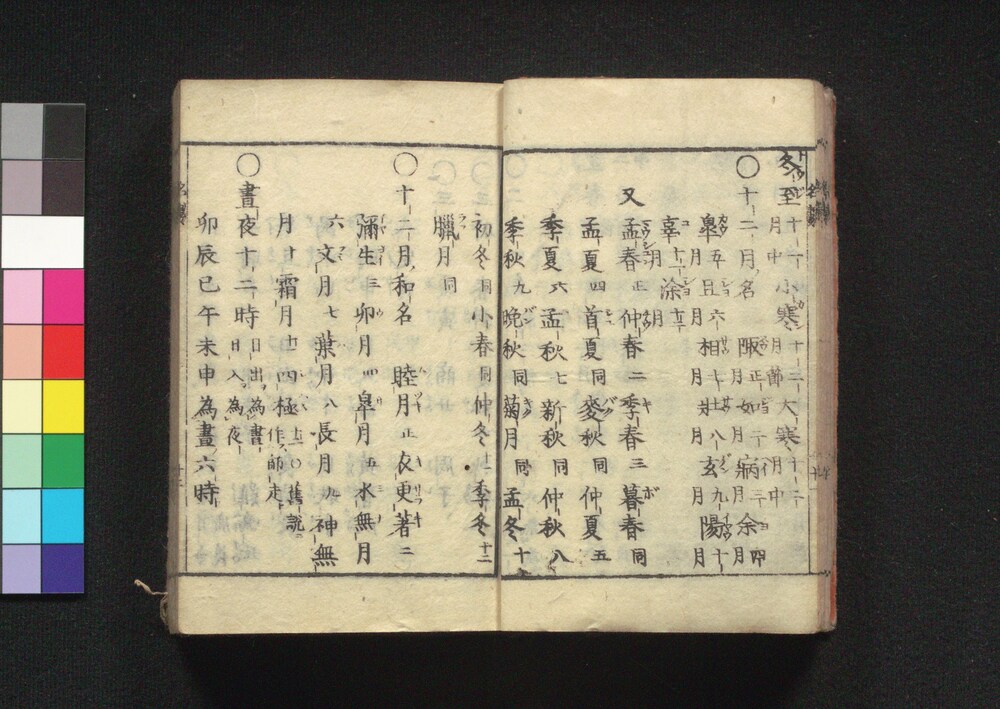 冬至十一月中 小寒十二月節 大寒十二月中
○十二月名 陬正月 如二月 病三月 余四月
皐五月 且六月 相七月 壯八月 玄九月 陽十月
辜十一月 涂十二月
又 孟春正 仲春二 季春三 暮春同
孟夏四 首夏同 麥秋同 仲夏五
季夏六 孟秋七 新秋同 仲秋八
季秋九 晩秋同 菊月同 孟冬十
初冬同 小春同 仲冬十一 季冬十二
臘月同
○十二月和名 睦月正 衣更著二
彌生三 卯月四 皐月五 水無月
六 文月七 葉月八 長月九 神無
月十 霜月十一 四極十二○舊說作師走
○晝夜十二時 日出為晝日入為夜
卯辰巳午未申為晝六時